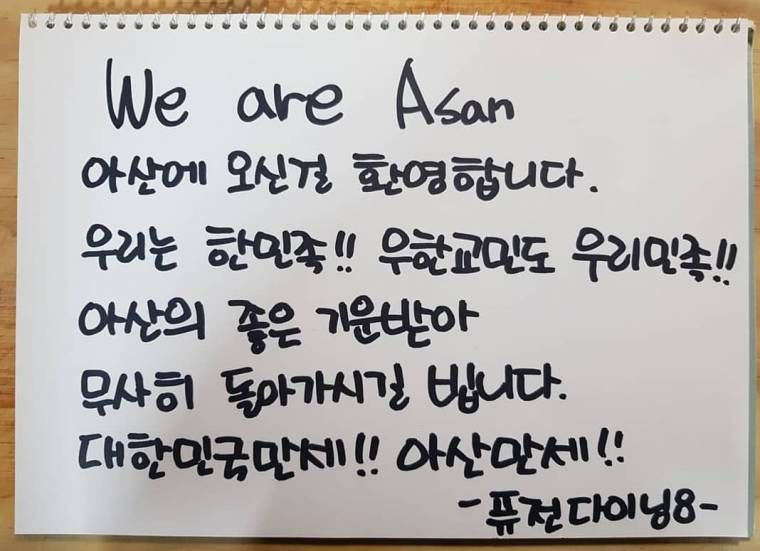 We are Asan
아산에 오신걸 환영합니다.
우리는 한민족!! 우한교민도 우리민족!!
아산의 좋은 기운받아
무사히 돌아가시길 빕니다.
대한민국만세!! 아산만세!!
-퓨전다이닝8-